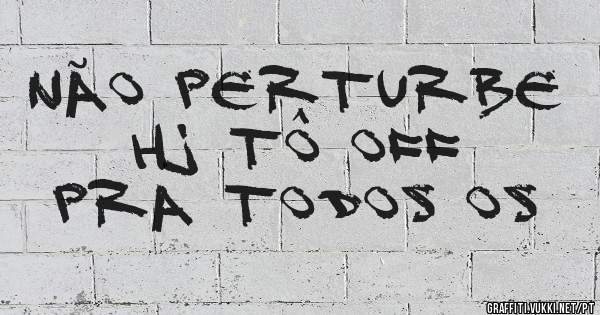 NÃO PERTURBE
Hj TÔ OFF
PRA TODOS OS
GRAFFITI.VUKKI.NET/PT